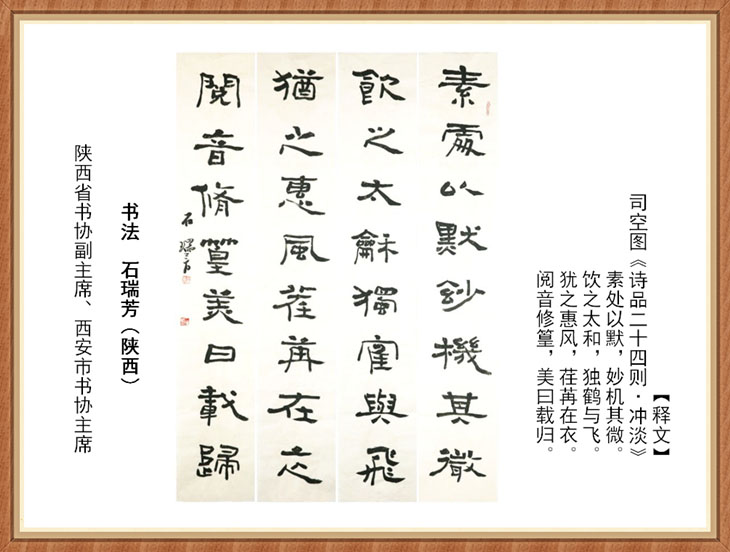 【释文】
司空图《诗品二十四则·冲淡》
素处以默，妙机其微。
饮之太和，独鹤与飞。
犹之惠风，荏苒在衣。
阅音修篁，美曰载归。
素處以默玅機其微
飲之太龢獨寉與飛
猶之惠風荏苒在衣
閱音脩篁美曰載歸
石瑞芳
书法 石瑞芳（陕西）
陕西省书协副主席、西安市书协主席